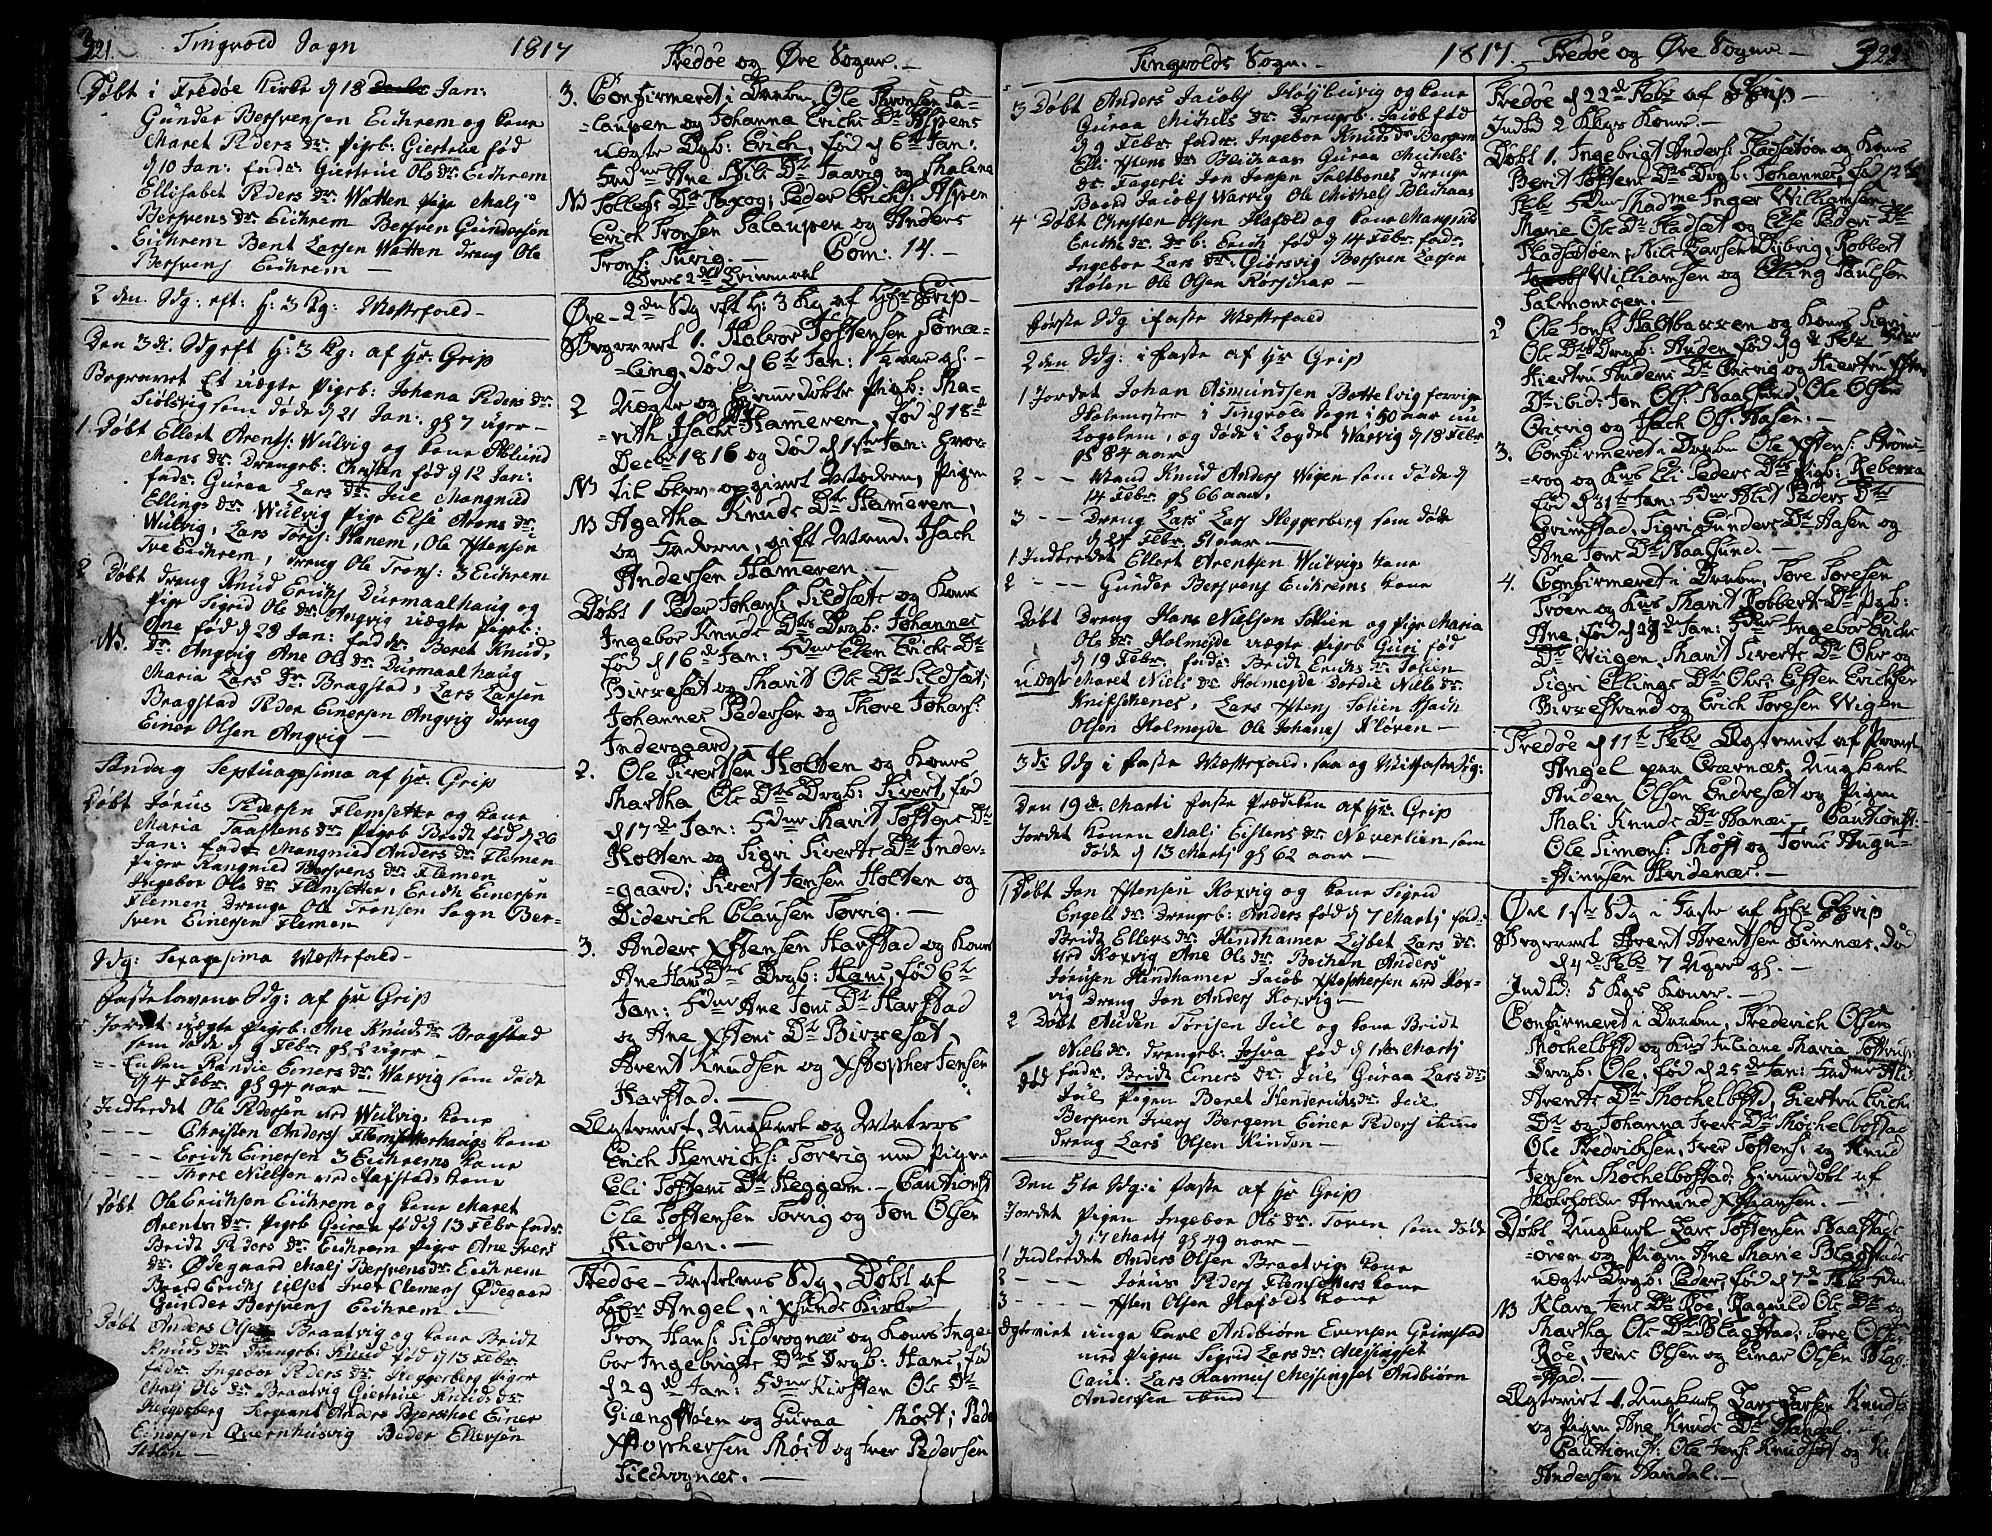 321. Tingvold Sogn 1817 Fredøe og Øve Sogne. –
Døbt i Fredøe Kirke d 18 Jan:
Gunder Bersvensen Eichrem og kone
Maret Peders dr. Pigeb: Giertrue fød
d 10 Jan: fadr: Giertrue Ols dr. Eichrem
Ellisabet Peders dr. Watten pige Malj
Bersvens dr. Eichrem Bersven Gundersen
Eichrem Bent Larsen Watten dreng Ole
Bersvens Eichrem –
2den Sdg: eft: H: 3 Kg: Mæssefald –
Den 3di Sdg eft H: 3 Kg: af Hr. Grip
Begravet Et uægte Pigeb: Johana Peders dr.
Siølsvig som døde d 21 Jan: gl 7 uger –
1. Døbt Ellert Arents: Wulvig og kone
Mons dr. Drengeb: Christen fød d 12 Jan:
fadr: Guraa Lars dr. Jul Mangnild
Ellings dr. Wulvig pige Else Arens dr.
Wulvig, Lars Tøris: Hanem, Ole Estensen
Tre Eichrem, dreng Ole Trons: 3 Eichrem
2 Døbt dreng Knud Erichs Durmaalhaug og
pige Sigrid Ols dr. Angvig uægte Pigeb:
Ane fød d 23 Jan: fadr. Beret Knuds
NB. dr. Angvig Ane Ols dr. Durmaalhaug
Maria Lars dr. Bragstad, Lars Larsen
Bragstad Peder Einersen Angvig dreng
Einer Olsen Angvig –
Søndag Septuagesima af Hr. Grip
Døbt Jørus Pedersen Flemsetter og kone
Maria Taastens dr. Pigeb Bridt fød d 26
Jan: fadr Mangnild Anders dr. Flemen
piger Rangnied Bersvens dr. Flemen
Ingebor Ols dr. Flemsetter, Erich Einersen
Flemen Drenge Ole Tronsen Sogn Ber-
sven Einersen Flemen
Sdg: Sexagesima Mæssefald –
Fastelavens Sdg: af Hr Grip
Jordet uægte Pigeb: Ane Knuds dr. Bragstad
som døde d 9 Febr. gl uger –
Enken Randie Einers dr. Warvig som døde
d 4 Febr. gl 94 aar –
1 Indleedet Ole Pedersen ved Wulvig kone
– – – Christen Anders Flemsetterhaugs kone
– – – Erich Einersen 3 Eichrems kone
– – – Thore Nielsen ved Stafstad kone
1 Døbt Ole Erichsen Eichrem og kone Maret
Arents dr. Pigeb Guraa fød d 13 Febr fadr.
Bridt Peders dr. Eichrem Piger Ane Ivers
dr. Ødegaard Malj Bersvens dr. Eichrem
Baard Erichs Iver Clemens Ødegaard
Gunder Bersvens Eichrem. –
2 Døbt Anders Olsen Braatvig og kone Bridt
Knuds dr. Drengeb: Knud fød d 13 Febr
fadr. Ingebor Peders dr. Heggerberg piger
Malj Ols dr. Braatvig Giertrue Knuds dr.
Heggerberg Sergeant Anders Einer
Einersen Qvernhusvig Peder Ellersen
Stolen –
3. Confirmeret i Daaben Ole Tronsen Sa-
laupen og Johanna Erichs Dtr Aspens
uægte Dgb: Erich, fød d 6te Jan:
Fadr Ane Nils Dtr Taavig og
Tollefs: Dtr Peder Erichs: Aspen
NB Erich Tronsen Salaupen og Anders
Trons: Turvig. – Com: 14. –
Øve – 2den Sdg eft H: 3 Kg af Hr Grip –
Begravet 1. Halvor Toftensen Sømæ-
-ling, død d 6te Jan: 1 uge gl. –
2 Uægte og hiemmedøbte Pigb: Ma-
-rith Isachs Hameren, fød d 18de
Decbr 1816 og død d 1ste Jan: hvor-
NB til blev opgivet Moderen, Pigen
NB Agatha Knuds Dtr Hameren,
og Faderen, gift Mand, Isach
Andersen Hameren –
Døbt 1 Peder Johans: Sildsæte og Kones
Ingebor Knuds Dtrs Drgb: Johannes
fød d 16de Jan: Fdur Elen Erichs Dtr
Birresæt og Marit Ols Dtr Sildsæt;
Johannes Pedersen og Thore Johans:
Indergaard. –
2. Ole Sivertsen Holten og Kones
Martha Ols Dtrs Drgb: Sivert, fød
d 17de Jan: Fdur Marit Toftens Dtr
Holten og Sigri Siverts Dtr Inder-
-gaard; Sivert Jensen Holten og
Diderich Clausen Torvig. –
3. Anders Xstensen Harstad og Kones
Ane Hans Dtrs Drgb: Hans, fød 6te
Jan: Fdur Ane Jons Dtr Harstad
og Ane Xstens Dtr Birresæt.
Arent Knudsen og Xstopher Jensen
Harstad. –
Egteviet, Ungkarl og Matros
Erich Henrichs: Torvig med Pigen
Eli Toftens Dtr Heggem. – Cautionst:
Ole Toftensen Torvig og Jon Olsen
Kiorten. –
Fredøe – Fastelavns Sdg, Døbt af
Hr Angel, i Xsunds Kirke
Tron Hans: Sildvognæs og Kones Inge-
bor Ingebrigts Dtrs Drgb: Hans, fød
d 29de Jan: Fdur Kirsten Ols Dtr
Giengstøen og Guraa Møst; Peder
Xstophersen Møst og Iver Pedersen
Sildvognæs. –
Tingvolds Sogn. – 1817. Fredøe og Øve Sogne. – 322.
3 Døbt Anders Jacobs Højbuvig og kone
Guraa Michels dr. Drengeb. Jacob fød
d 9 Febr. fadr. Ingebor Knuds dr Bergem
Elli Estens dr. Blechaas Guraa Michels
dr. Fagerli Jon Jonsen Saltbones Drenge
Baard Jacobs Warvig Ole Michels Blechaas
4 Døbt Christen Olsen Hafsold og kone Mangnild
Erichs dr. Dr b: Erich fød d 14 Febr. fadr.
Ingebor Lars dr. Giørsvig Bersven Larsen
Stolen Ole Olsen Rørschar –
Første Sdg i faste Mæssefald
2den Sdg: i faste af Hr Grip
1 Jordet Johan Asmundsen Bottelvig forrige
Holmester i Tingvold Sogn i 50 aar nu
Logelem, og døde i Logdet Warvig d 18 Febr
gl 84 aar –
2 – – Mand Knud Anders Wigen som døde d
14 Febr. gl 66 aar.
3 – – Dreng Lars Lars Heggerberg som døde
d 27 Febr. 51 aar –
1 Indleedet Ellert Arentsen Wulvigs kone
2 – – – Gunder Bersvens Eichrems kone
Døbt Dreng Hans Nielsen Solien og pige Maria
Ols dr. Holmejde uægte Pigeb Guri fød
d 19 Febr. fadr: Bridt Erichs dr. Solien
uægte Maret Niels dr. Holmejde Dordie Niels dr.
Knifschenes, Lars Estens Solien Isach
Olsen Holmejde Ole Johans Kløven –
3di Sdg i faste Mæssefald. saa og Mitfaste Sdg:
Den 19de Marti faste Prædiken af Hr: Grip
Jordet konen Malj Eistens dr. Naverlien som
døde d 13 Martj gl 62 aar –
1 Døbt Jon Estensen Roxvig og kone Sigrid
Engels dr. Drengeb: Anders fød d 7 Martj fad:
Bridt Ellers dr. Hindhamer Lisbet Lars dr.
ved Roxvig Ane Ols dr. Bechen Anders
Jørusen Hindhamer Jacob Xstophersen ved Rox-
vig Dreng Jon Anders Roxvig –
2 Døbt Auden Tørisen Jul og kone Bridt
Niels dr. Drengeb: Josva fød d 1ste Martj
død fadr. Bridt Einers dr. Jul, Guraa Lars dr.
Jul Pigen Beret Henderichs dr. Jul
Bersven Ivers Bergem Einer Peders
dreng Lars Olsen Kinden –
Den 5te Sdg: i faste af Hr Grip
Jordet Pigen Ingebor Ols dr. Toven som døde
d 17 Martj gl 49 aar –
1 Indleedet Anders Olsen Braatvig kone
2 – – – Jørus Peders Flemsetters kone
3 – – – Esten Olsen Hafsolds kone
Egteviet unge karl Andbiørn Evensen Grimstad
med Pigen Sigrid Lars dr. Mejsingset
Caut: Lars Rasmus Mejsingset Andbiørn
Andersen ibid
Fredøe d 22de Febr af Grip –
Indled 2 Kbgs Koner. –
Døbt 1. Ingebrigt Anders: Fladsetøen og Kones
Berit Toftens Dtrs Drgb: Johannes, fød 12te
Febr Fdur Madme Inger Williamsen
Marie Ols Dtr Fladsæt og Else Peders Dtr
Fladsetøen; Nils Larsen Dybvig, Robbert
Williamsen og Elling Paulsen
Salmonsgen. –
2 Ole Jons: Haltbakken og Kones Sigri
Ols Dtrs Drgb: Anders fød d 9 Febr
Kiertru Anders Dtr Qverig og Kiertru Estens
Dtr ibid; Jon Ols: Naalsund, Ole Olsen
Qverig og Isach Ols: Hasen. –
3. Confirmeret i Daaben Ole Xstens: Strøms-
-vog og Kones Eli Peders Dtrs Pigb: Rebecca
fød d 31te Jan: Fdur Marit Peders Dtr
Grimstad, Sigri Gunders Dtr Hasen og
Ane Jons Dtr Naalsund. –
4. Confirmeret i Daaben, Tore Toresen
Troen og Kones Marit Robberts Dtr Pigb:
Ane, fød d 29de Jan: Fdur Ingebor Erichs
Dtr Wiigen, Marit Siverts Dtr Ohr og
Sigri Ellings Dtr Ohr; Esten Erichsen
Birkestrand og Erich Toresen Wigen
Fredøe d 11te Febr Egteviet af Provst
Angel paa Qværnæs, Ungkarl
Auden Olsen Endresæt og Pigen
Mali Knuds Dtr Banæs – Cautionst:
Ole Simons: Møst og Jorus Augu-
-stinusen Hvidenæs. –
Øve 1ste Sdg i Faste af Hr Grip
Begravet Arent Arentsen Simnæs, død
d 4de Febr 7 Uger gl. –
Indld: 5 Kbgs Koner. –
Confirmeret i Daaben, Frederich Olsen
Mochelbostd og Kones Juliane Maria Tøftrups
Drgb: Ole, fød d 25de Jan: Fadur Ali
Arents Dtr Mochelbostd, Giertru Erichs
Dtr og Johanna Ivers Dtr Møchelbostad
Ole Fredrichsen, Iver Toftens: og Knud
Jensen Møchelbostad; hiemmedøbt af
Skoleholder Amund Xstiansen. –
Døbt Ungkarl Lars Toftensen Naastad-
-øren og Pigen Ane Marie Blagstads
uægte Drgb: Peder, fød d 7de Febr Fdur
NB Klara Jens Dtr Roe, Ragnild Ols Dtr og
Martha Ols Dtr Blagstad; Tore Olsen
Roe, Jens Olsen og Einar Olsen Blag-
-stad.
Egteviet 1. Ungkarl Lars Larsen Knudts
og Pigen Ane Knuds Dtr Handal. –
Cautionst: Ole Jens: Knudtsøt og
Andersen Handal. –